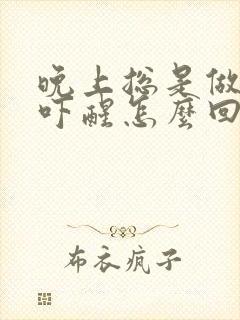 晚上总是做
吓醒怎麽回
布衣疯子